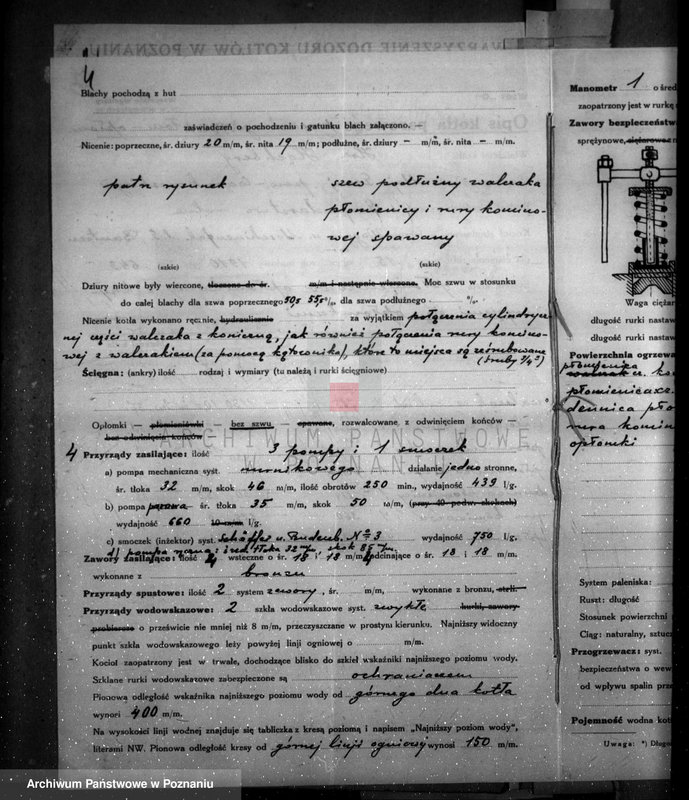 4
Blachy pochodzą z hut
zaświadczeń o pochodzeniu i gatunku blach załączono. —
Nicenie: poprzeczne, śr. dziury 20 m/m, śr. nita 19 m/m; podłużne, śr. dziury — m/m, śr. nita — m/m.
patrz rysunek
szew podłużny walczaka
płomienicy i rury komino-
wej spawany
(szkic) (szkic)
Dziury nitowe były wiercone, tłoczone do śr. m/m i następnie wiercone. Moc szwu w stosunku
do całej blachy dla szwu poprzecznego 50,5 55,5 %, dla szwa podłużnego %.
Nicenie kotła wykonano ręcznie, hydraulicznie za wyjątkiem połączenia cylindrycz-
nej części walczaka z komierzą, jak również połączenia rury komino-
wej z walczakiem (za pomocą kątownika), które to miejsca są ześrubowane
(śruby 3/4")
Ściągna: (ankry) ilość rodzaj i wymiary (tu należą i rurki ściągniowe)
Opłomki — płomieniówki — bez szwu spawane, rozwalcowane z odwinięciem końców —
bez odwinięcia końców
4 Przyrządy zasilające: ilość 3 pompy i 1 smoczek
a) pompa mechaniczna syst. nurnikowego działanie jedno stronne,
śr. tłoka 32 m/m, skok 46 m/m, ilość obrotów 250 min., wydajność 439 l/g.
b) pompa parowa śr. tłoka 35 m/m, skok 50 m/m, (przy 40 podw. skokach)
wydajność 660 l/g.
c) smoczek (inżektor) syst. Schäffer u. Budenb. No 3 wydajność 750 l/g.
d) pompa ręczna: śred. tłoka 32 m/m, skok 85 m/m.
Zawory zasilające: ilość 4 wsteczne o śr. 18 i 18 m/m, 4 odcinające o śr. 18 i 18 m/m.
wykonane z bronzu
Przyrządy spustowe: ilość 2 system zawory, śr. m/m, wykonane z bronzu, stali.
Przyrządy wodowskazowe: 2 szkła wodowskazowe syst. zwykłe kurki, zawory
probiercze o prześwicie nie mniej niż 8 m/m, przeczyszczane w prostym kierunku. Najniższy widoczny
punkt szkła wodowskazowego leży powyżej linji ogniowej o m/m.
Kocioł zaopatrzony jest w trwałe, dochodzące blisko do szkieł wskaźniki najniższego poziomu wody.
Szklane rurki wodowskazowe zabezpieczone są ochraniaczem
Pionowa odległość wskaźnika najniższego poziomu wody od górnego dna kotła
wynosi 400 m/m.
Na wysokości linji wodnej znajduje się tabliczka z kresą poziomą i napisem „Najniższy poziom wody",
literami NW. Pionowa odległość kresy od górnej linji ogniowej wynosi 150 m/m.
Manometr 1 o śred
zaopatrzony jest w rurkę s
Zawory bezpieczeństwa
sprężynowe, ciężarowe
Waga ciężar
długość rurki nastaw
długość rurki nastaw
Powierzchnia ogrzewa
płomienica
walczak cz. ko
płomienica cz.
dennica pło
rura komin
opłomki
System paleniska:
Ruszt: długość
Stosunek powierzchni
Ciąg: naturalny, sztucz
Przegrzewacz: syst.
bezpieczeństwa o wew
od wpływu spalin prze
Pojemność wodna kotł
Uwaga: *) Długo
ARCHIWUM PAŃSTWOWE
W POZNANIU
Archiwum Państwowe w Poznaniu